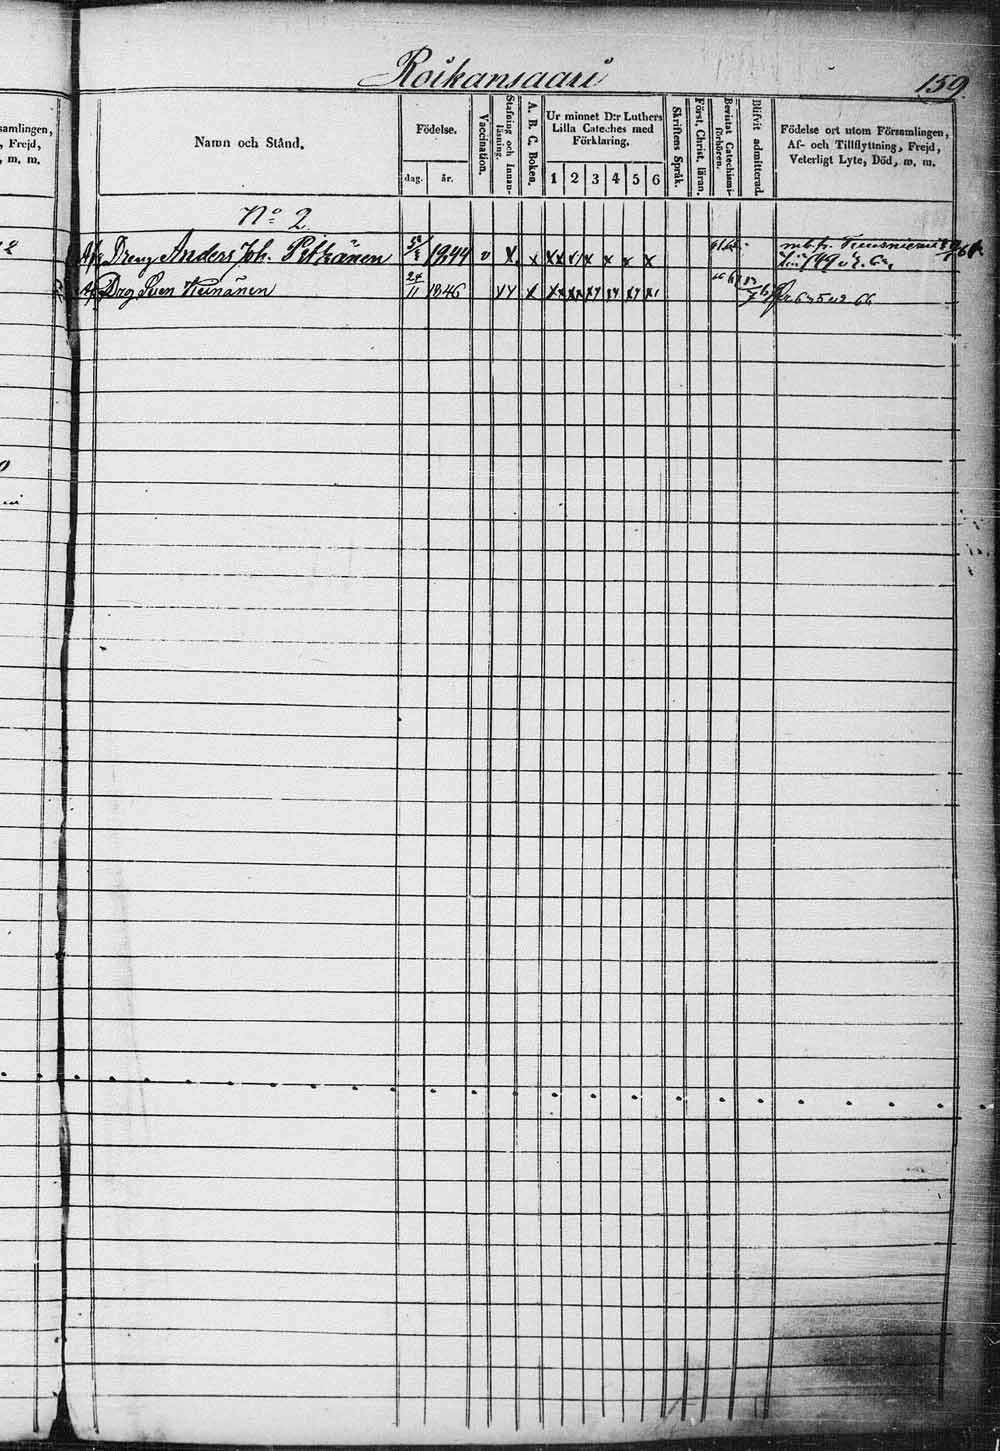 Roikansaari
159.
samlingen,
, Frejd,
, m. m.
Namn och Stånd.
Födelse.
dag.
år.
Vaccination.
Stafning och Innan-
läsning.
A. B. C. Boken.
Ur minnet D:r Luthers
Lilla Cateches med
Förklaring.
1 2 3 4 5 6
Skriftens Språk.
Först. Christ. läran.
Bevistat Catechismi-
förhören.
Blifvit admitterad.
Födelse ort utom Församlingen,
Af- och Tillflyttning, Frejd,
Veterligt Lyte, Död, m. m.
No 2.
Dreng Anders Joh. Pitkänen 1844 v x x x x x x x x x
Drg Sven Keinänen 24/11 1846